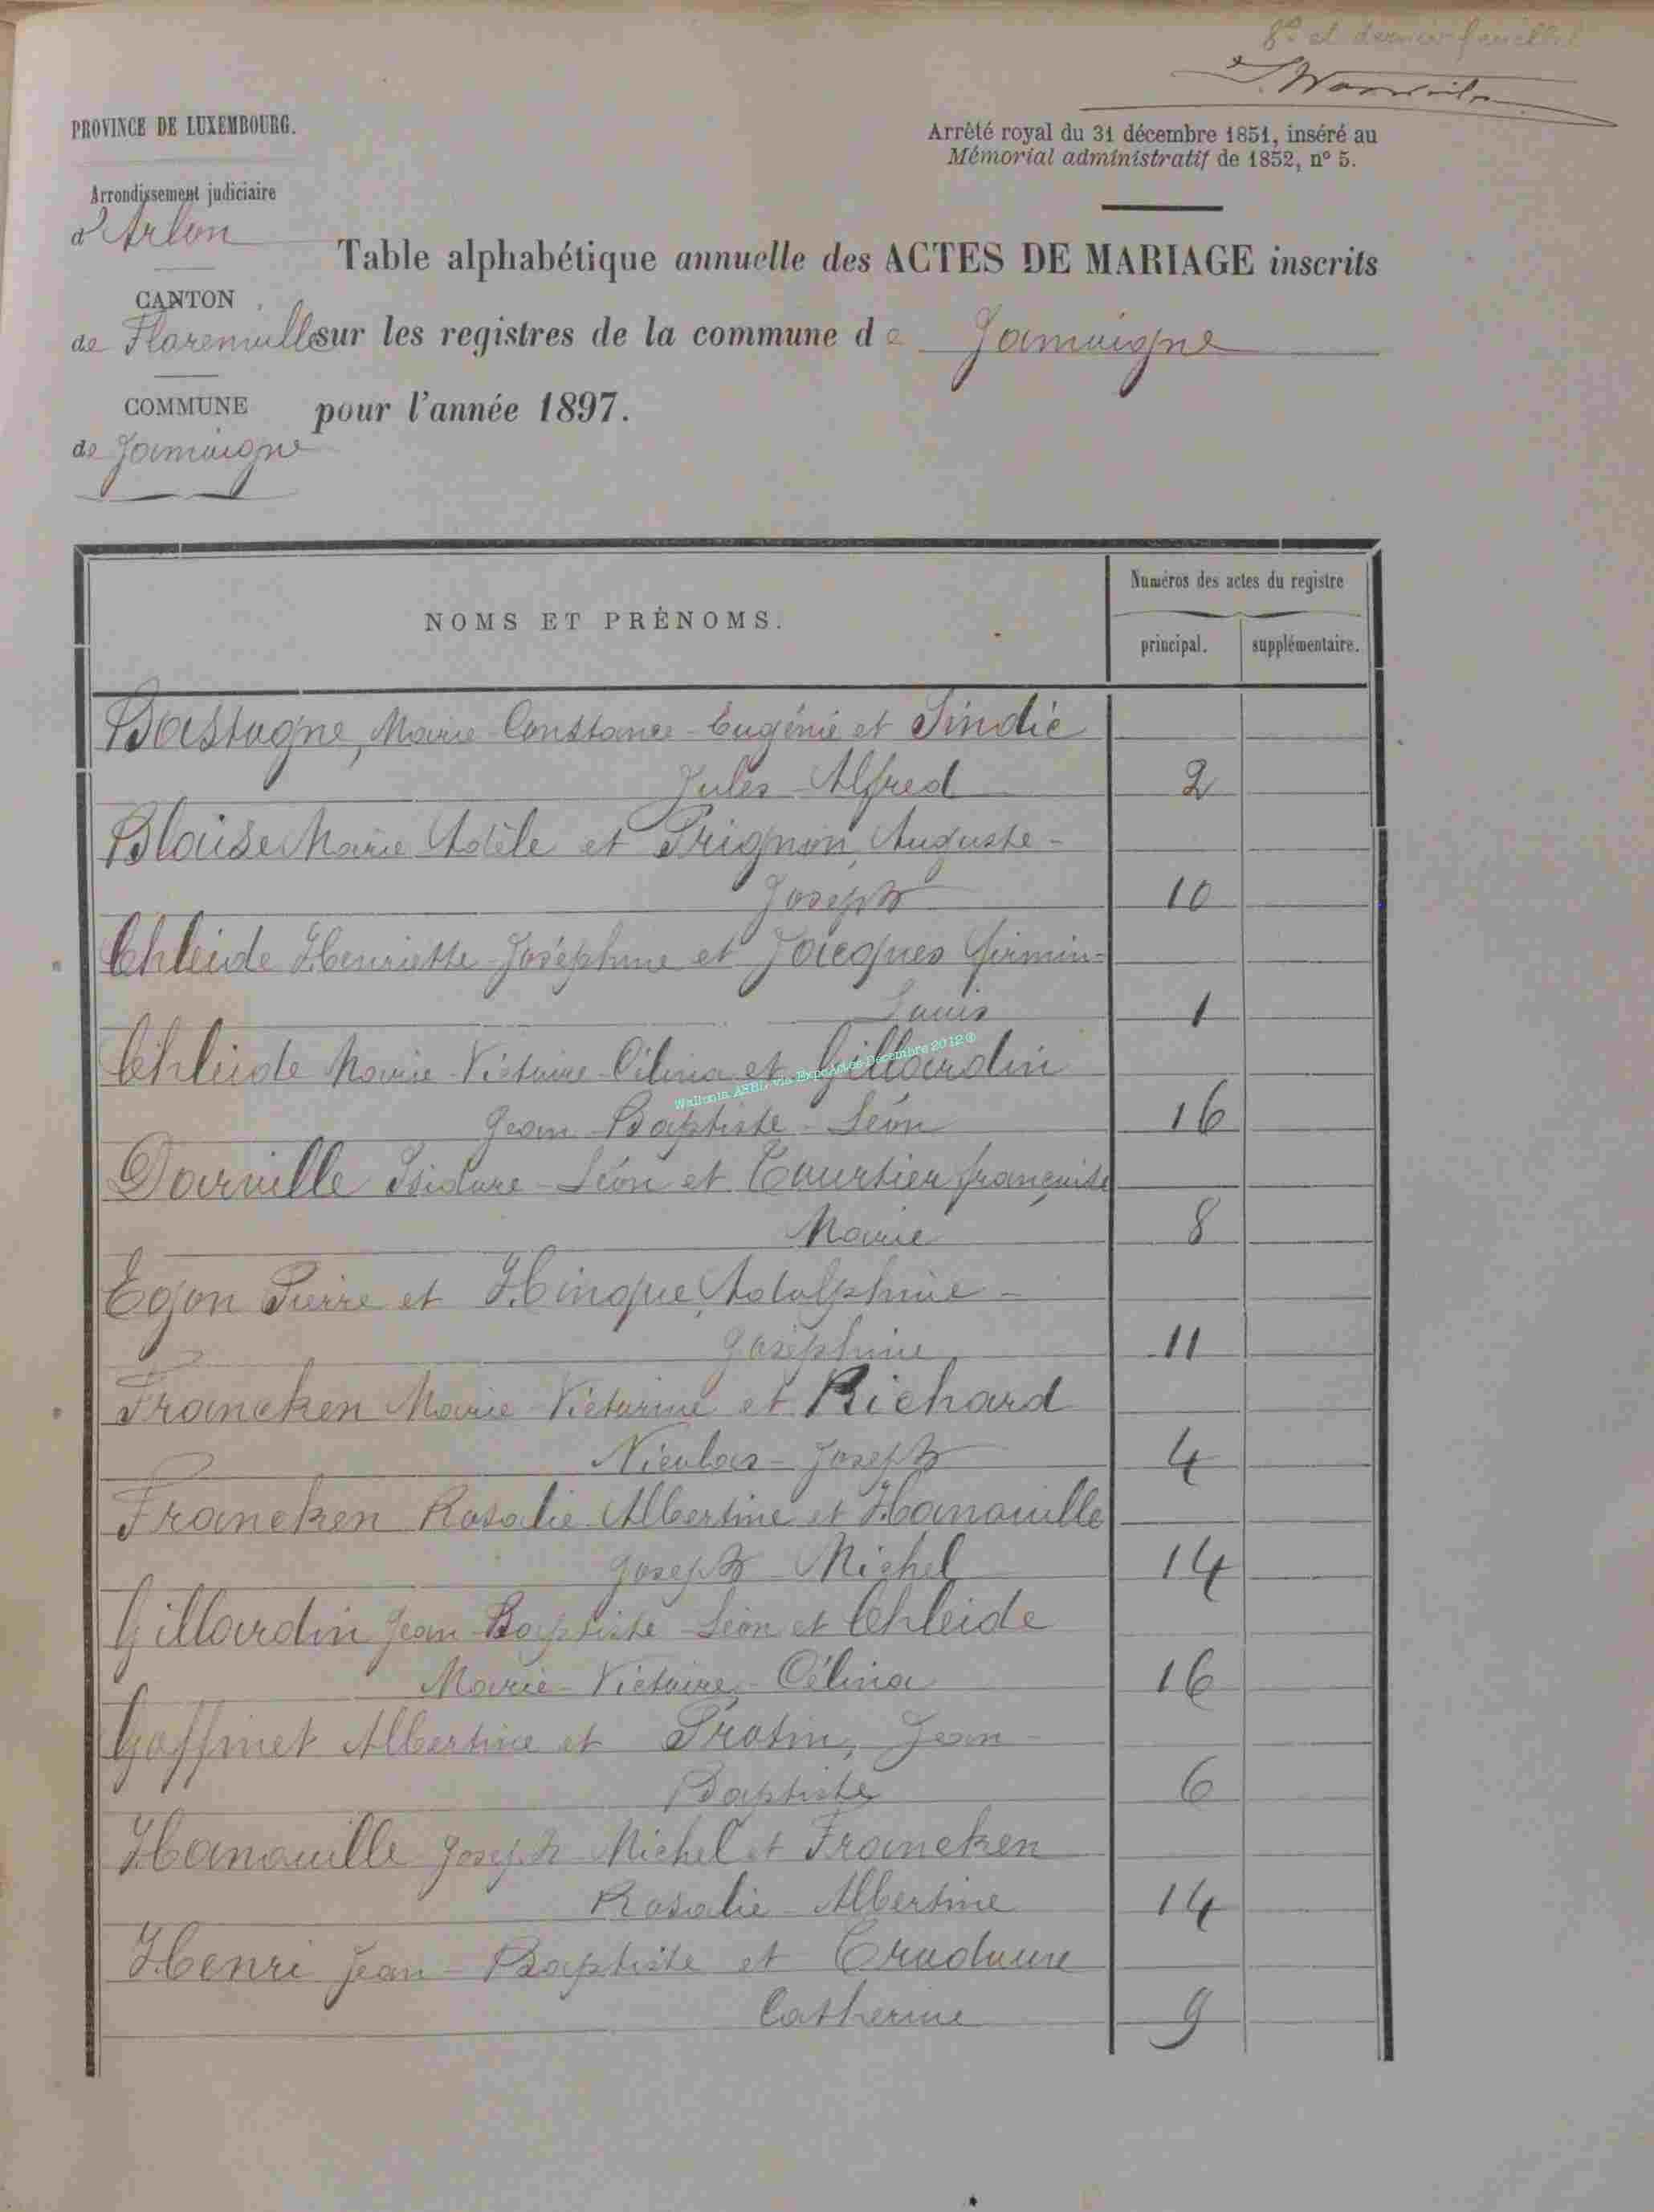 8e et dernier feuillet
PROVINCE DE LUXEMBOURG.
Arrêté royal du 31 décembre 1851, inséré au
Mémorial administratif de 1852, nº 5.
Arrondissement judiciaire
d'Arlon
Table alphabétique annuelle des ACTES DE MARIAGE inscrits
CANTON
de Florenville
sur les registres de la commune de Jamoigne
COMMUNE
de Jamoigne
pour l'année 1897.
NOMS ET PRÉNOMS.
Numéros des actes du registre
principal. supplémentaire.
Bastogne, Marie Constance-Eugénie et Sindic
Jules-Alfred 2
Blaise Marie Adèle et Prignon, Auguste-
Joseph 10
Chleide Henriette-Joséphine et Jacques Firmin-
Louis 1
Chleide Marie-Victoire-Célina et Gillardin
Jean-Baptiste-Léon 16
Wallonia ASBL via ExpoActes-Décembre 2012©
Dourville Isidore-Léon et Courtier françoise
Marie 8
Egon Pierre et Hinque, Adolphine-
Joséphine 11
Francken Marie-Victorine et Richard
Nicolas-Joseph 4
Francken Rosalie-Albertine et Hanouille
Joseph-Michel 14
Gillardin Jean-Baptiste-Léon et Chleide
Marie-Victoire-Célina 16
Goffinet Albertine et Protin, Jean-
Baptiste 6
Hanouille Joseph-Michel et Francken
Rosalie-Albertine 14
Henri Jean-Baptiste et Cradoure
Catherine 9